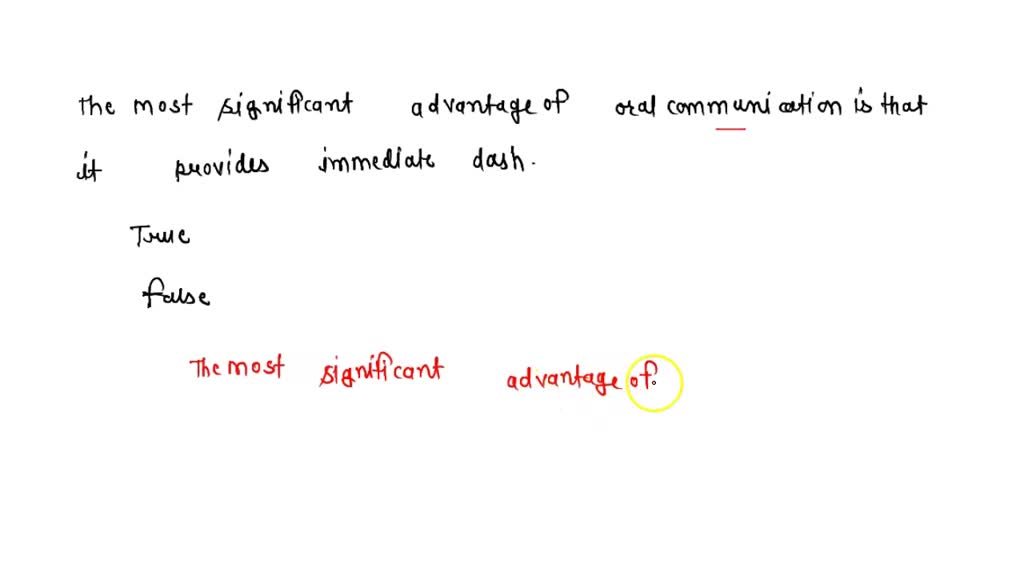 The most significant advantage of oral communication is that
it provides immediate dash.
True
false
The most significant advantage of